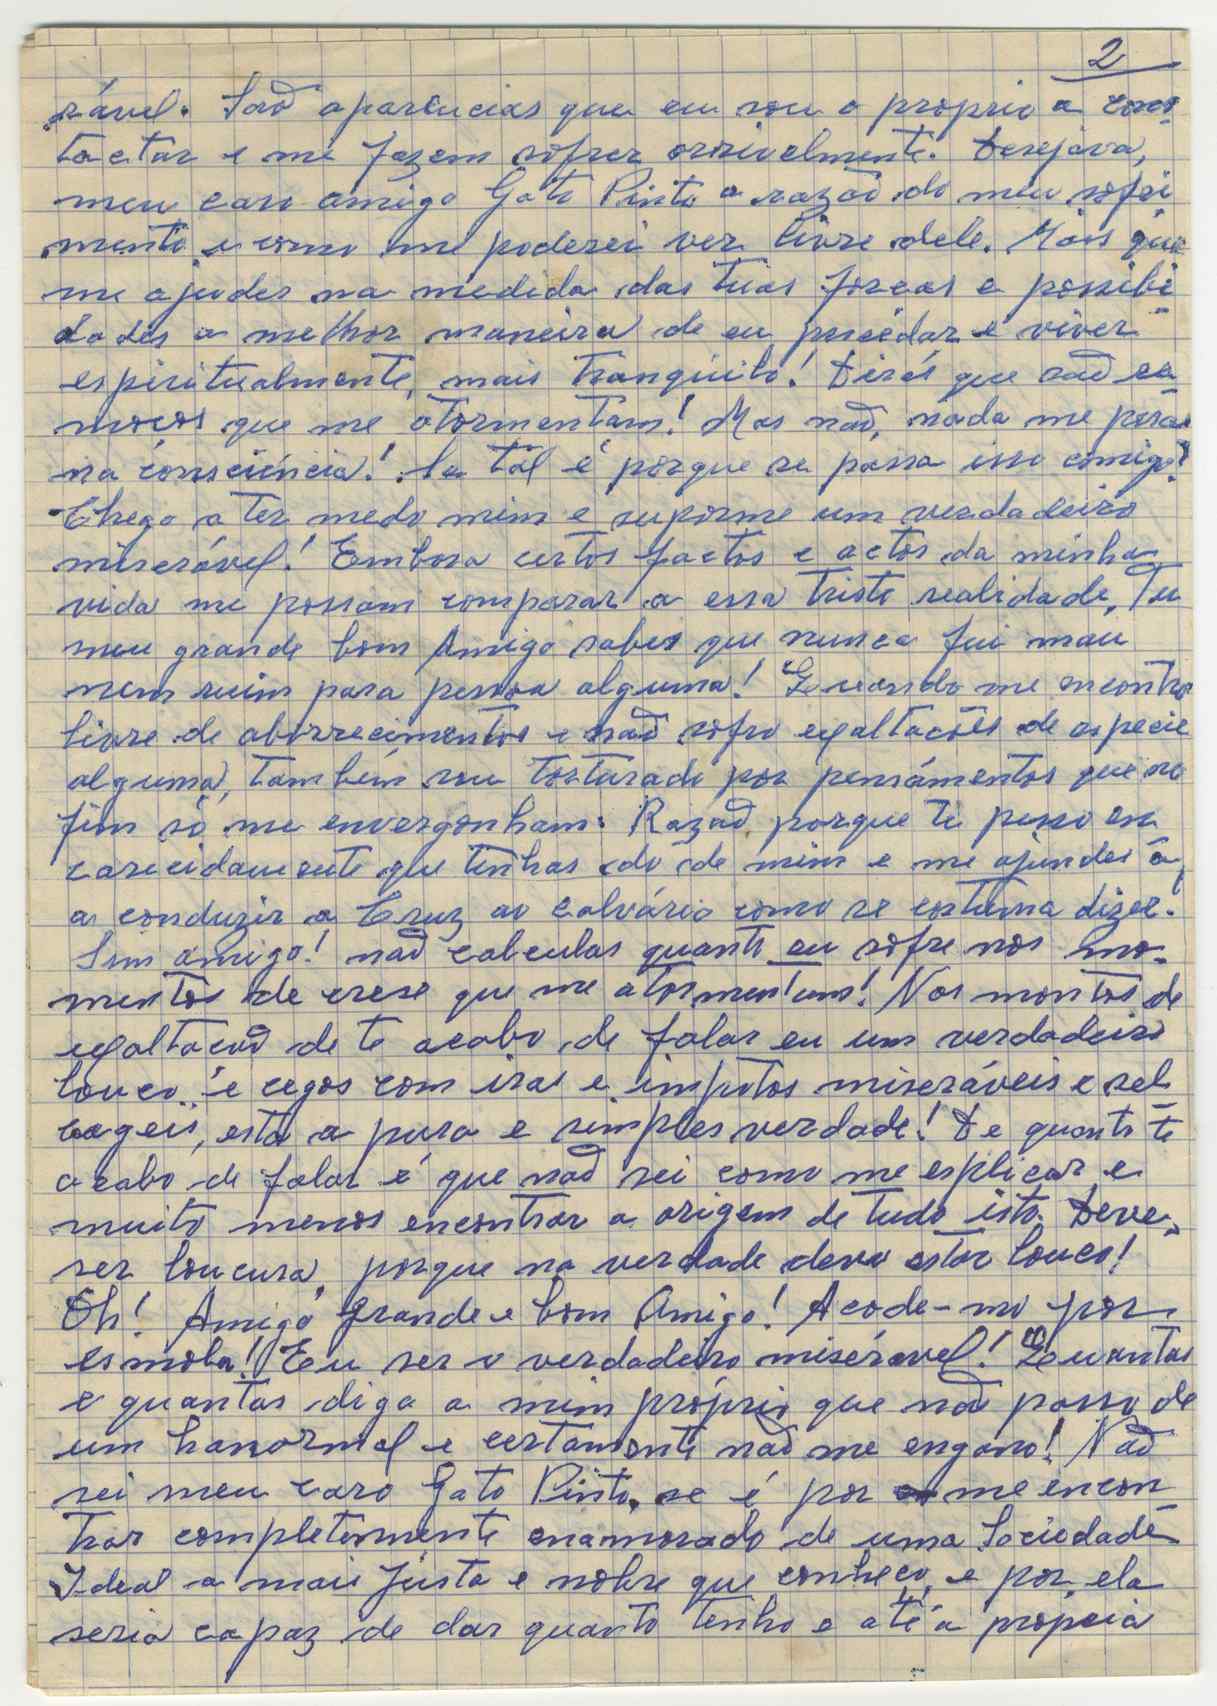 2
rável. Saõ aparências que eu sou o proprio a cons-
tactar e me fazem sofrer orrivelmente. Desejava,
meu caro amigo Gato Pinto a razaõ do meu sofri
mento e como me poderei ver livre dele. Mais que
me ajudes na medida das tuas forcas e possibi
dades a melhor maneira de eu procedar e viver
espiritualmente, mais tranquilo! Dirás que saõ re
morços que me atormentam! Mas naõ, nada me pesa
na consciência! Se tal é porque se passa isso comigo?
Chego a ter medo mim e suporme um verdadeiro
miserável! Embora certos factos e actos da minha
vida me possam comparar a essa triste realidade, Tu
meu grande bom Amigo sabes que nunca fui mau
nem ruim para pessoa alguma! Quando me encontro
livre de aborrecimentos e naõ sofro exaltacões de especie
alguma, também sou torturado por pensámentos que no
fim só me envergonham. Razaõ porque te pesso en
carecidamente que tenhas dó de mim e me ajudes a
a conduzir a Cruz ao Calvário como se costuma dizer!
Sim amigo! naõ calculas quanto eu sofre nos mo-
mentos de crese que me atormentam! Nos montos de
exaltacaõ de te acabo de falar eu um verdadeiro
louco é cegos com iras e impetos miseráveis e sel
vageis, esta a pura e simples verdade! De quanto te
acabo de falar é que naõ sei como me esplicar e
muito menos encontrar a origem de tudo isto. Deve
ser loucura, porque na verdade devo estar louco!
Oh! Amigo grande e bom Amigo! Acode-me por
esmola! Eu ser o verdadeiro miserável! Quantas
e quantas diga a mim próprio que naõ passo de
um hanormal e certamente naõ me engano! Naõ
sei meu caro Gato Pinto, se é por me encon
trar completamente enamorado de uma Sociedade
Ideal a mais justa e nobre que conheço, e por ela
seria capaz de dar quanto tenho e até a própria